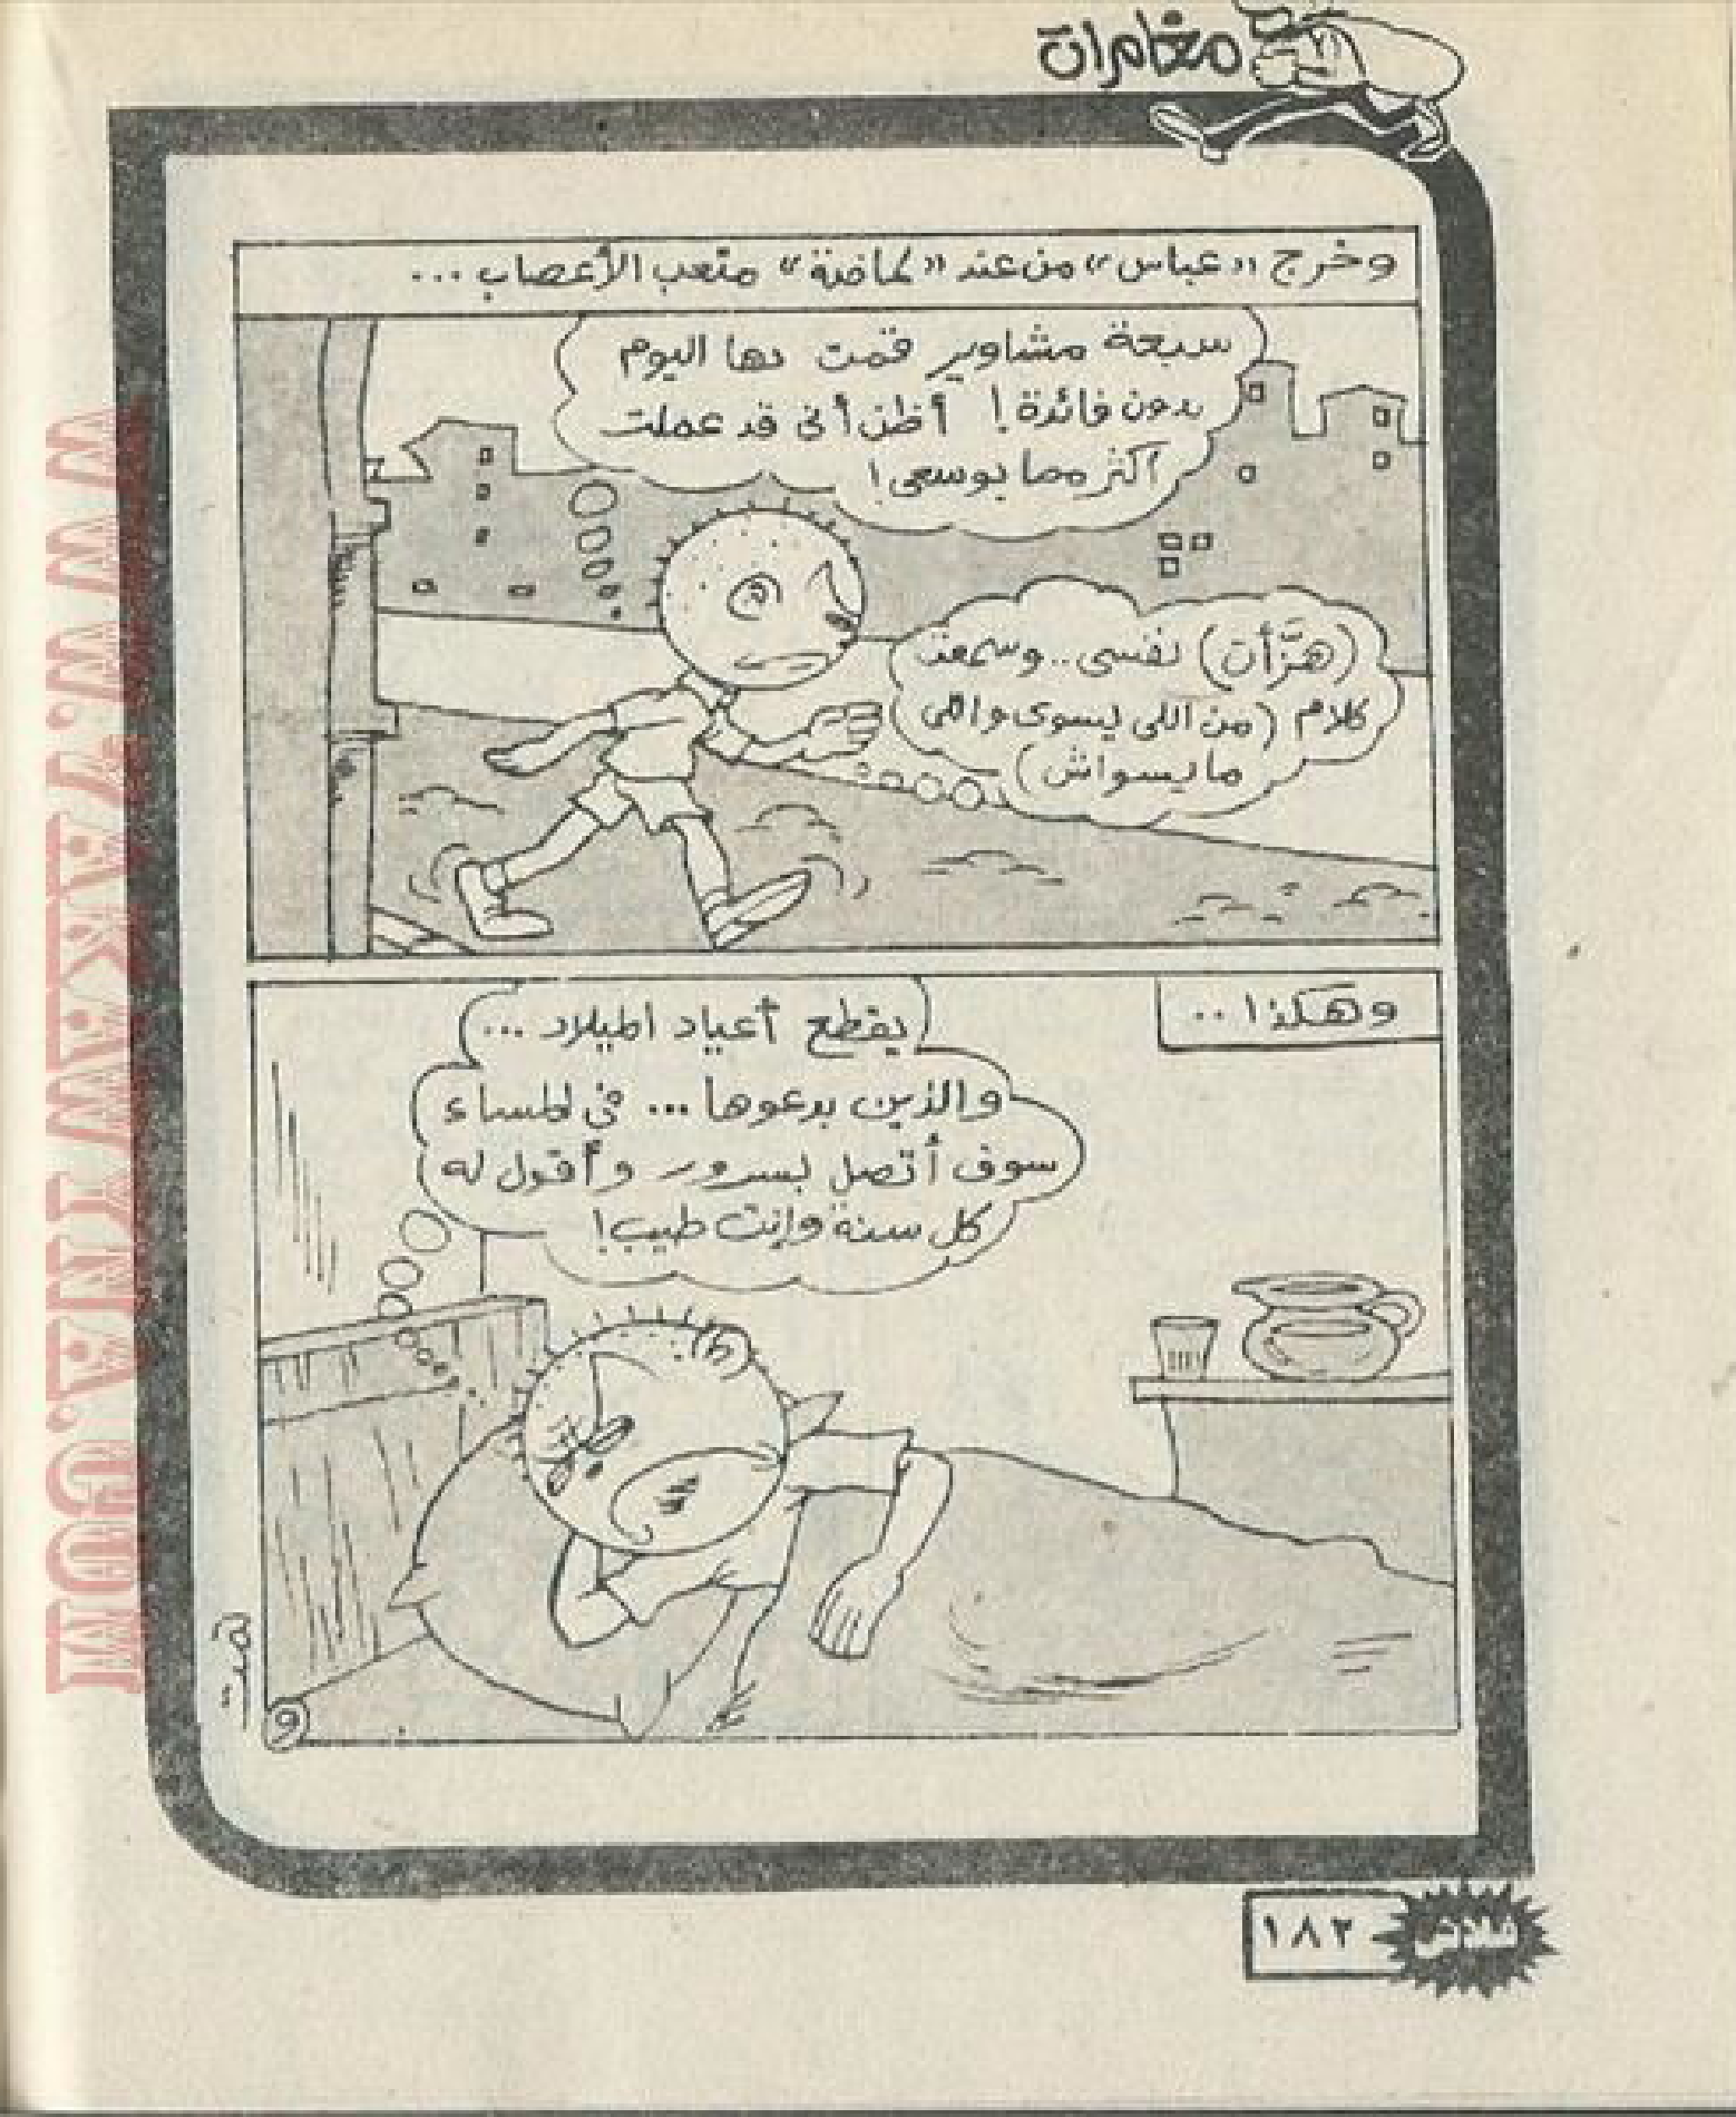 مغامرات
وخرج «عباس» من عند «لماضة» متعب الأعصاب ...
سبعة مشاوير قمت بها اليوم
بدون فائدة! أظن أنى قد عملت
أكثر مما بوسعى!
(هزَّأت) نفسى.. وسمعت
كلام (من اللى يسوى واللى
مايسواش)
وهكذا ..
يقطع أعياد الميلاد ...
والذين بدعوها ... فى المساء
سوف أتصل بسرور وأقول له
كل سنة وإنت طيب!
تمت
٩
فلاش
١٨٢
WWW.ARAKEWTNA.COM